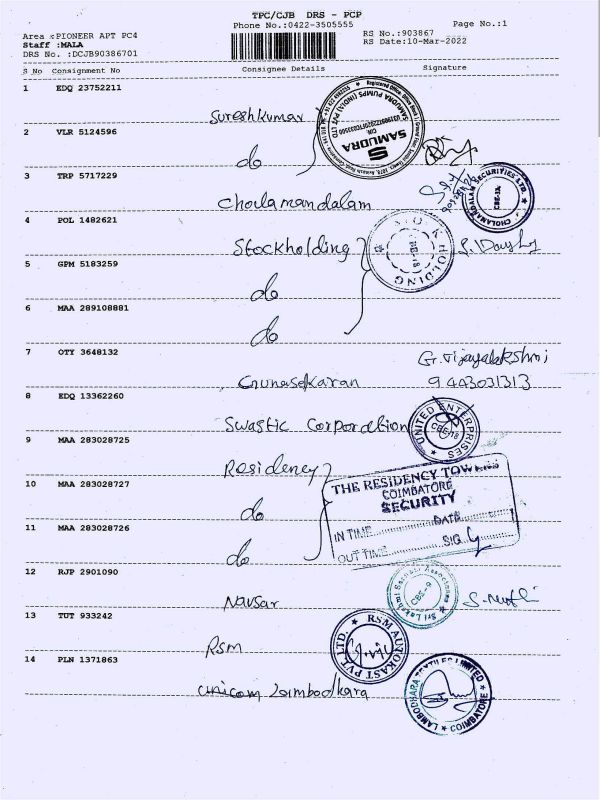 TPC/CJB DRS - PCP
Phone No.:0422-3505555
Page No.:1
Area :PIONEER APT PC4
RS No.:903867
Staff :MALA
RS Date:10-Mar-2022
DRS No. :DCJB90386701
S No Consignment No Consignee Details Signature
1 EDQ 23752211
Sureshkumar
SAMUDRA PUMPS (INDIA) PVT LTD
SAMUDRA
2 VLR 5124596
do
3 TRP 5717229
Cholamandalam
CHOLAMANDALAM SECURITIES LTD.
4 POL 1482621
Stockholding
HOLDING
5 GPM 5183259
do
6 MAA 289108881
do
7 OTY 3648132
G. Vijayalakshmi
Gunasekaran 9443031313
8 EDQ 13362260
Swastic Corporation
UNITED ENTERPRISES
CBE-18
9 MAA 283028725
Residency
THE RESIDENCY TOWERS
COIMBATORE
SECURITY
10 MAA 283028727
do
IN TIME DATE
OUT TIME SIG
11 MAA 283028726
do
12 RJP 2901090
Navsar
CBE-9
13 TUT 933242
RSM
RSM AUTOKAST PVT LTD.
14 PLN 1371863
Unicom Lambodhara
LAMBODHARA TEXTILES LIMITED
COIMBATORE